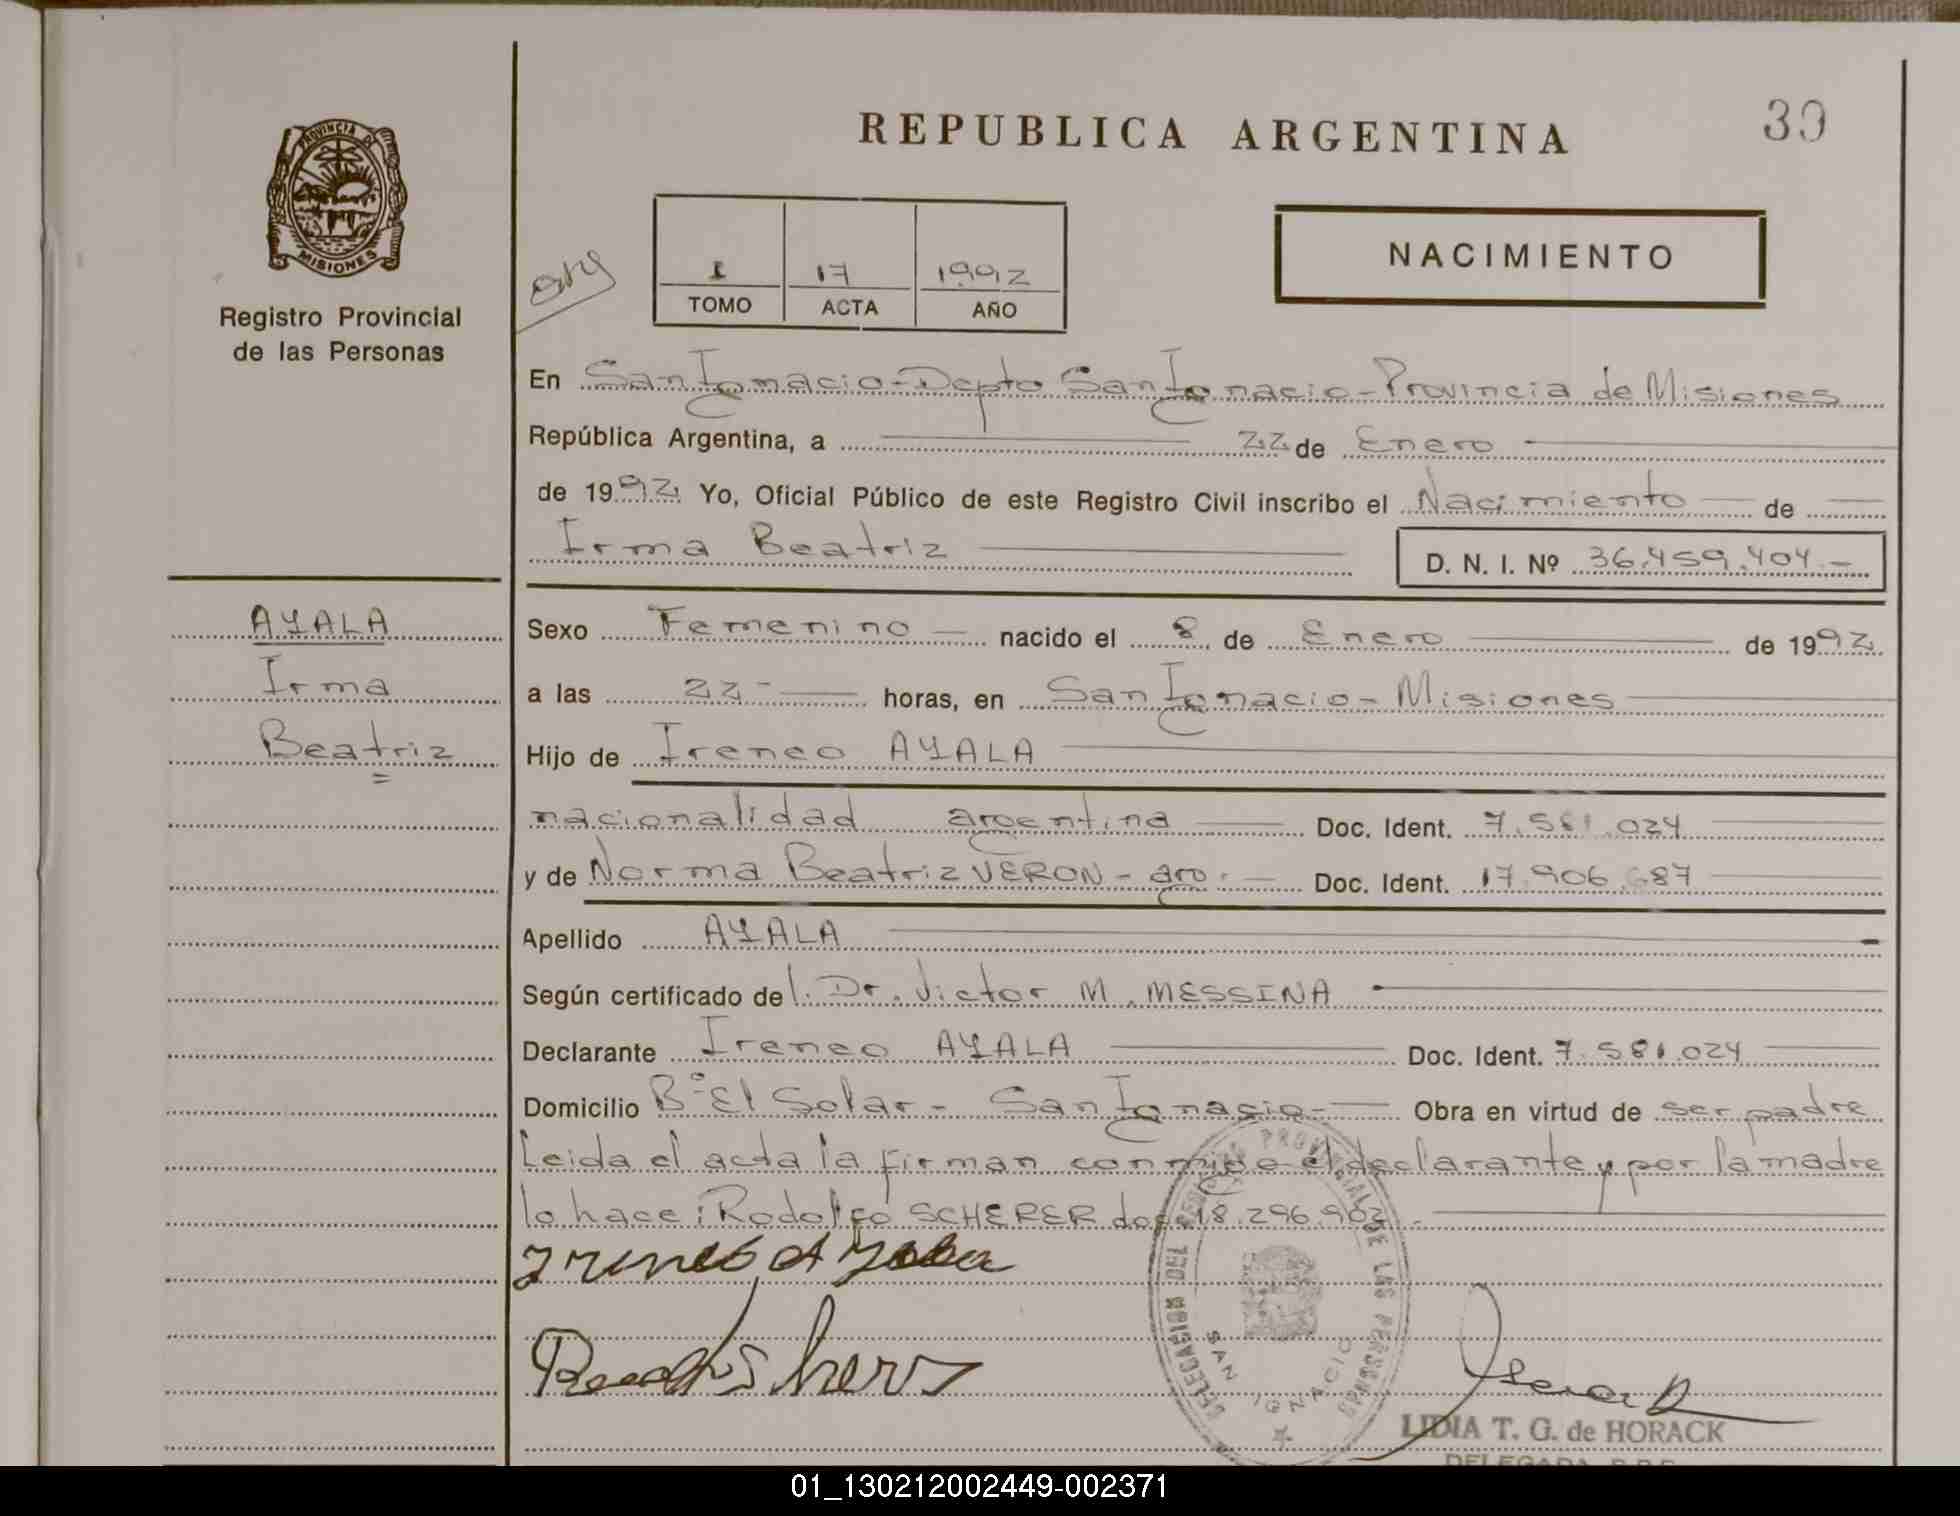 REPUBLICA ARGENTINA
30
PROVINCIA DE
MISIONES
Registro Provincial
de las Personas
I 17 1992
TOMO ACTA AÑO
NACIMIENTO
En San Ignacio - Depto San Ignacio - Provincia de Misiones
República Argentina, a 22 de Enero
de 1992 Yo, Oficial Público de este Registro Civil inscribo el Nacimiento de
Irma Beatriz D. N. I. Nº 36.459.404.-
AYALA
Irma
Beatriz
Sexo Femenino nacido el 8 de Enero de 1992
a las 22- horas, en San Ignacio - Misiones
Hijo de Ireneo AYALA
nacionalidad argentina Doc. Ident. 7.581.024
y de Norma Beatriz VERON - arg. Doc. Ident. 17.906.687
Apellido AYALA
Según certificado de l. Dr. Victor M. MESSINA
Declarante Ireneo AYALA Doc. Ident. 7.581.024
Domicilio Bº El Solar - San Ignacio - Obra en virtud de ser padre
Leida el acta la firman conmigo el declarante y por la madre
lo hace: Rodolfo SCHERER doc. 18.296.902.
Ireneo Ayala
DELEGACION DEL REGISTRO PROVINCIAL DE LAS PERSONAS
SAN IGNACIO
LIDIA T. G. de HORACK
DELEGADA R.P.P.
01_130212002449-002371